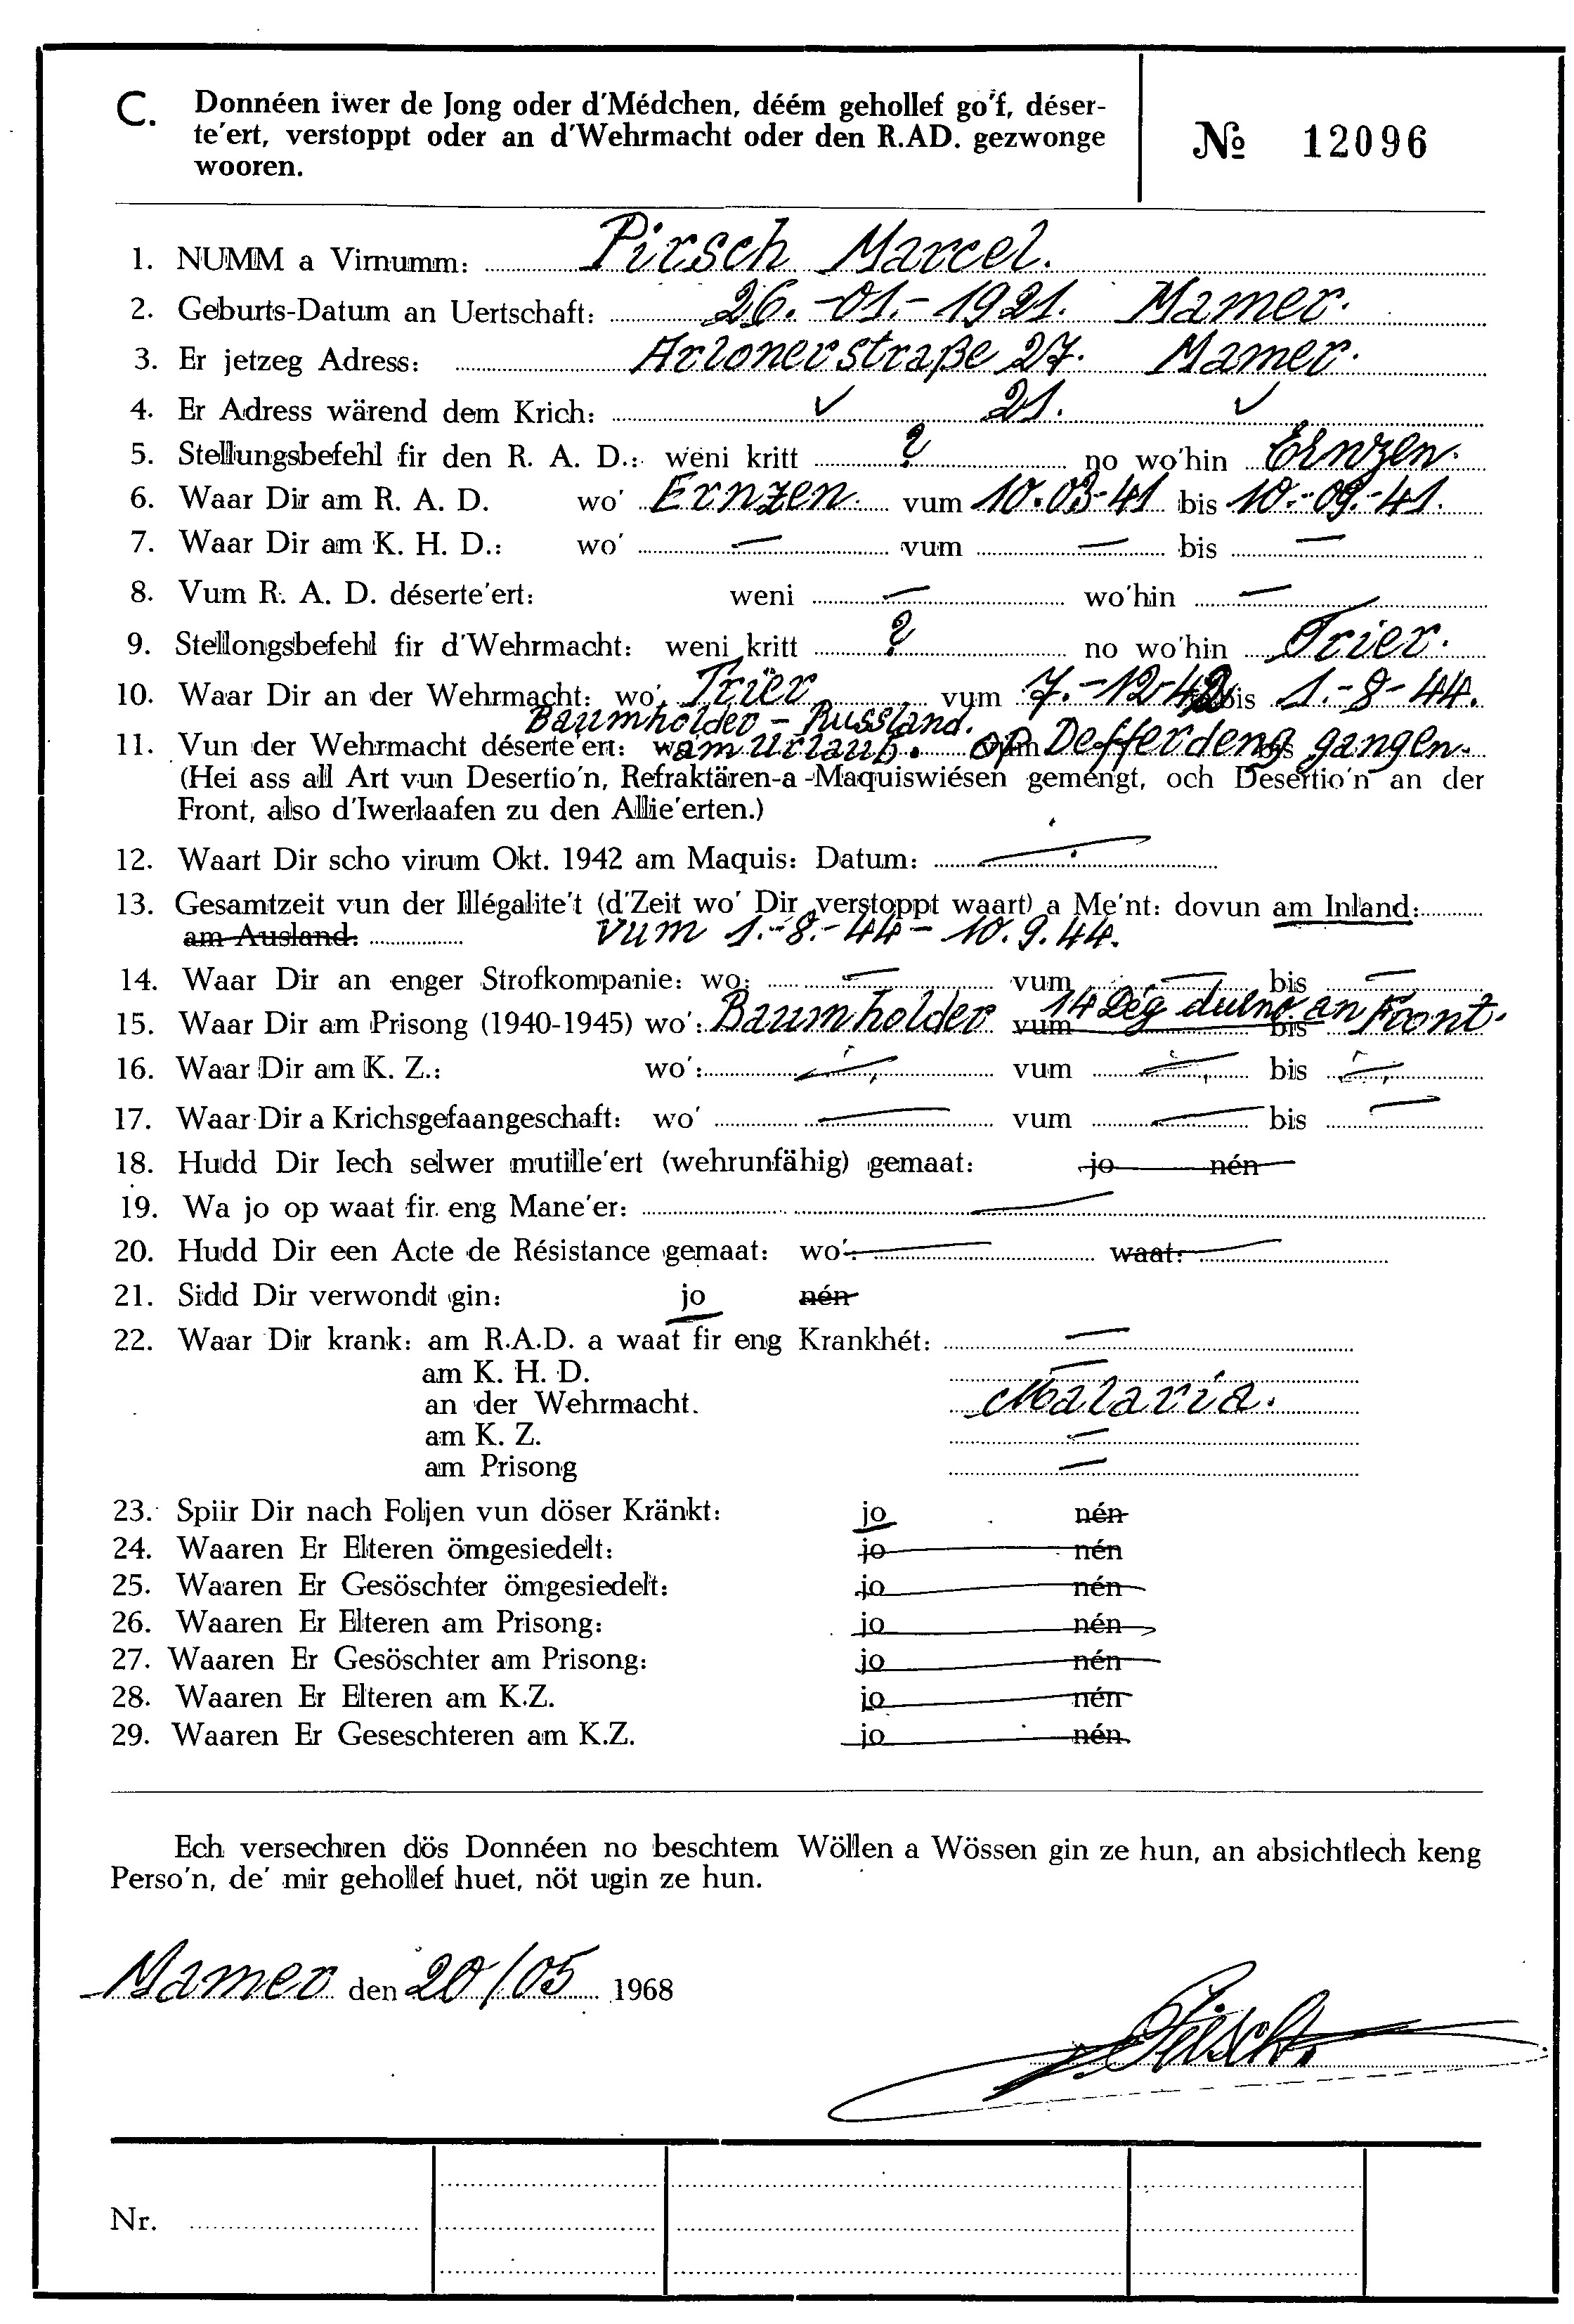 C. Donnéen iwer de Jong oder d'Médchen, déém gehollef go'f, déser-
te'ert, verstoppt oder an d'Wehrmacht oder den R.AD. gezwonge
wooren.
№ 12096
1. NUMM a Virnumm: Pirsch Marcel.
2. Geburts-Datum an Uertschaft: 26.-01.-1921. Mamer.
3. Er jetzeg Adress: Arlonerstraße 27. Mamer.
4. Er Adress wärend dem Krich: ✓ 21. ✓
5. Stellungsbefehl fir den R. A. D.: weni kritt ? no wo'hin Ernzen.
6. Waar Dir am R. A. D. wo' Ernzen. vum 10.03-41 bis 10.-09.-41.
7. Waar Dir am K. H. D.: wo' — vum — bis —
8. Vum R. A. D. déserte'ert: weni — wo'hin —
9. Stellongsbefehl fir d'Wehrmacht: weni kritt ? no wo'hin Trier.
10. Waar Dir an der Wehrmacht: wo' Trier vum 7.-12-42 bis 1.-8-44.
Baumholder - Russland.
11. Vun der Wehrmacht déserte'ert: am Urlaub. op Defferdeng gangen.
(Hei ass all Art vun Desertio'n, Refraktären-a -Maquiswiésen gemengt, och Desertio'n an der
Front, also d'Iwerlaafen zu den Allie'erten.)
12. Waart Dir scho virum Okt. 1942 am Maquis: Datum: —
13. Gesamtzeit vun der Illégalite't (d'Zeit wo' Dir verstoppt waart) a Me'nt: dovun am Inland:
am Ausland: vum 1.-8.-44 - 10.9.44.
14. Waar Dir an enger Strofkompanie: wo: — vum — bis —
15. Waar Dir am Prisong (1940-1945) wo': Baumholder vum 14 Deg duerno an Front. bis
16. Waar Dir am K. Z.: wo': — vum — bis —
17. Waar Dir a Krichsgefaangeschaft: wo' — vum — bis —
18. Hudd Dir Iech selwer mutille'ert (wehrunfähig) gemaat: jo nén
19. Wa jo op waat fir eng Mane'er: —
20. Hudd Dir een Acte de Résistance gemaat: wo': — waat: —
21. Sidd Dir verwondt gin: jo nén
22. Waar Dir krank: am R.A.D. a waat fir eng Krankhét: —
am K. H. D. —
an der Wehrmacht. Malaria.
am K. Z. —
am Prisong —
23. Spiir Dir nach Foljen vun döser Kränkt: jo nén
24. Waaren Er Elteren ömgesiedelt: jo nén
25. Waaren Er Gesöschter ömgesiedelt: jo nén
26. Waaren Er Elteren am Prisong: jo nén
27. Waaren Er Gesöschter am Prisong: jo nén
28. Waaren Er Elteren am K.Z. jo nén
29. Waaren Er Geseschteren am K.Z. jo nén
Ech versechren dös Donnéen no beschtem Wöllen a Wössen gin ze hun, an absichtlech keng
Perso'n, de' mir gehollef huet, nöt ugin ze hun.
Mamer den 20/05 1968
Pirsch.
Nr.